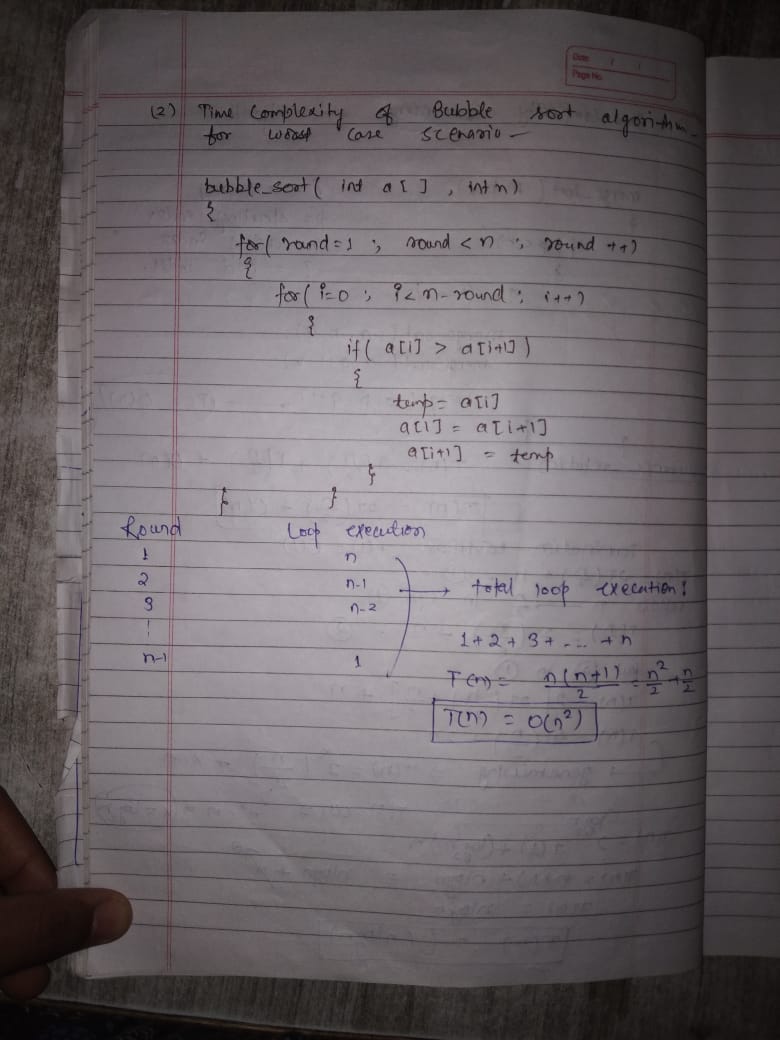 Date / /
Page No.
(2) Time Complexity of Bubble sort algorithm
for worst case scenario -
bubble_sort( int a[ ] , int n)
{
for( round=1 ; round < n ; round ++)
{
for( i=0 ; i< n-round ; i++)
{
if( a[i] > a[i+1] )
{
temp = a[i]
a[i] = a[i+1]
a[i+1] = temp
}
} }
Round Loop execution
1 n
2 n-1
3 n-2
n-1 1
→ total loop execution :
1+2+3+ ... +n
T(n) = n(n+1)/2 = n²/2 + n/2
T(n) = O(n²)